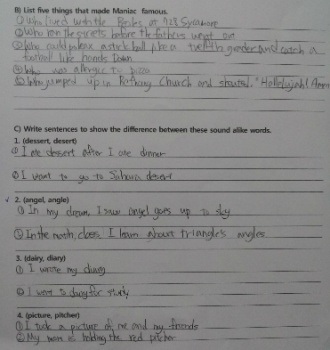 B) List five things that made Maniac famous.
① who lived with the Beales at 728 Sycamore
② who ran the streets before the fathers went out
③ Who could poleax a stickball like a twelfth grader and catch a
football like hands Down
④ Who was allergic to pizza
⑤ Who jumped up in Bethany Church and shouted, "Hallelujah! Amen
C) Write sentences to show the difference between these sound alike words.
1. (dessert, desert)
① I ate dessert after I ate dinner
② I want to go to Sahara desert
2. (angel, angle)
① In my dream, I saw angel goes up to sky
② In the math class I learn about triangle's angles
3. (dairy, diary)
① I wrote my diary
② I went to dairy for
4. (picture, pitcher)
① I took a picture of me and my friends
② My mom is holding the red pitcher